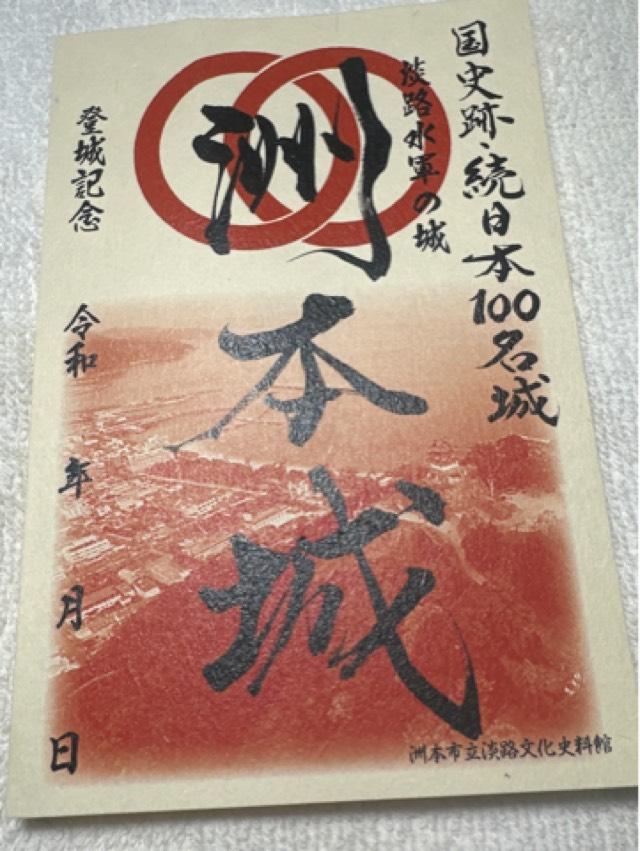 国史跡・続日本100名城
淡路水軍の城
洲本城
登城記念
令和 年 月 日
洲本市立淡路文化史料館